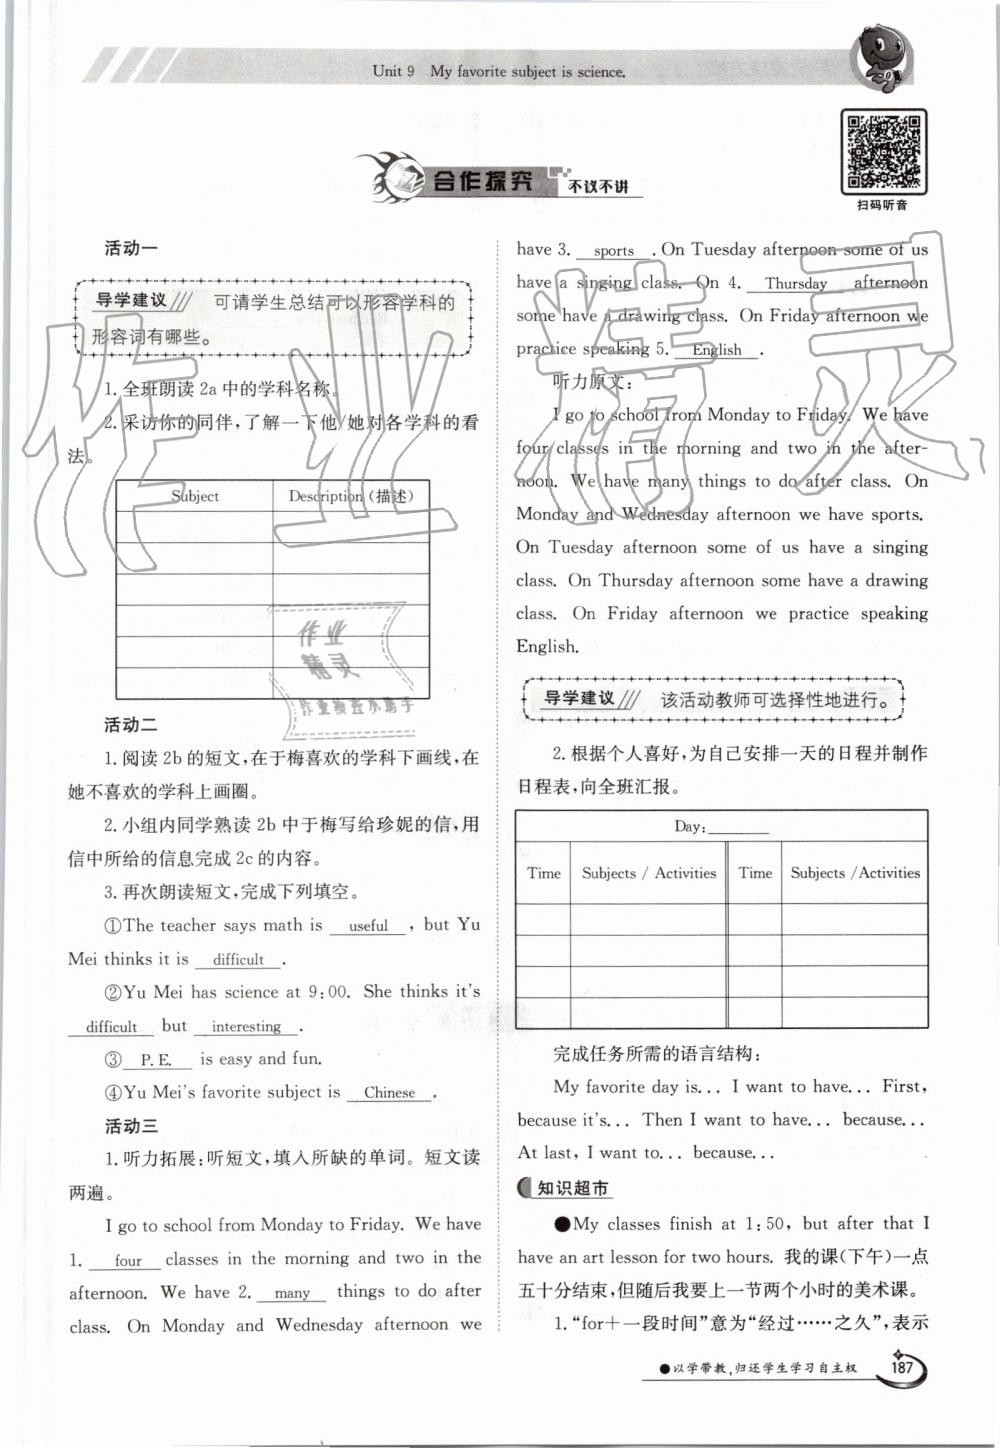 Unit 9 My favorite subject is science.
合作探究 不议不讲
扫码听音
活动一
导学建议 可请学生总结可以形容学科的
形容词有哪些。
1.全班朗读 2a 中的学科名称。
2.采访你的同伴,了解一下他/她对各学科的看
法。
Subject Description(描述)
活动二
1.阅读 2b 的短文,在于梅喜欢的学科下画线,在
她不喜欢的学科上画圈。
2.小组内同学熟读 2b 中于梅写给珍妮的信,用
信中所给的信息完成 2c 的内容。
3.再次朗读短文,完成下列填空。
①The teacher says math is useful , but Yu
Mei thinks it is difficult .
②Yu Mei has science at 9:00. She thinks it's
difficult but interesting .
③ P.E. is easy and fun.
④Yu Mei's favorite subject is Chinese .
活动三
1.听力拓展:听短文,填入所缺的单词。短文读
两遍。
I go to school from Monday to Friday. We have
1. four classes in the morning and two in the
afternoon. We have 2. many things to do after
class. On Monday and Wednesday afternoon we
have 3. sports . On Tuesday afternoon some of us
have a singing class. On 4. Thursday afternoon
some have a drawing class. On Friday afternoon we
practice speaking 5. English .
听力原文:
I go to school from Monday to Friday. We have
four classes in the morning and two in the after-
noon. We have many things to do after class. On
Monday and Wednesday afternoon we have sports.
On Tuesday afternoon some of us have a singing
class. On Thursday afternoon some have a drawing
class. On Friday afternoon we practice speaking
English.
导学建议 该活动教师可选择性地进行。
2.根据个人喜好,为自己安排一天的日程并制作
日程表,向全班汇报。
Day:
Time Subjects / Activities Time Subjects /Activities
完成任务所需的语言结构:
My favorite day is... I want to have... First,
because it's... Then I want to have... because...
At last, I want to... because...
知识超市
●My classes finish at 1:50, but after that I
have an art lesson for two hours. 我的课(下午)一点
五十分结束,但随后我要上一节两个小时的美术课。
1.“for+一段时间”意为“经过……之久”,表示
●以学带教,归还学生学习自主权 187
作业精灵
作业
精灵
作业检查小助手